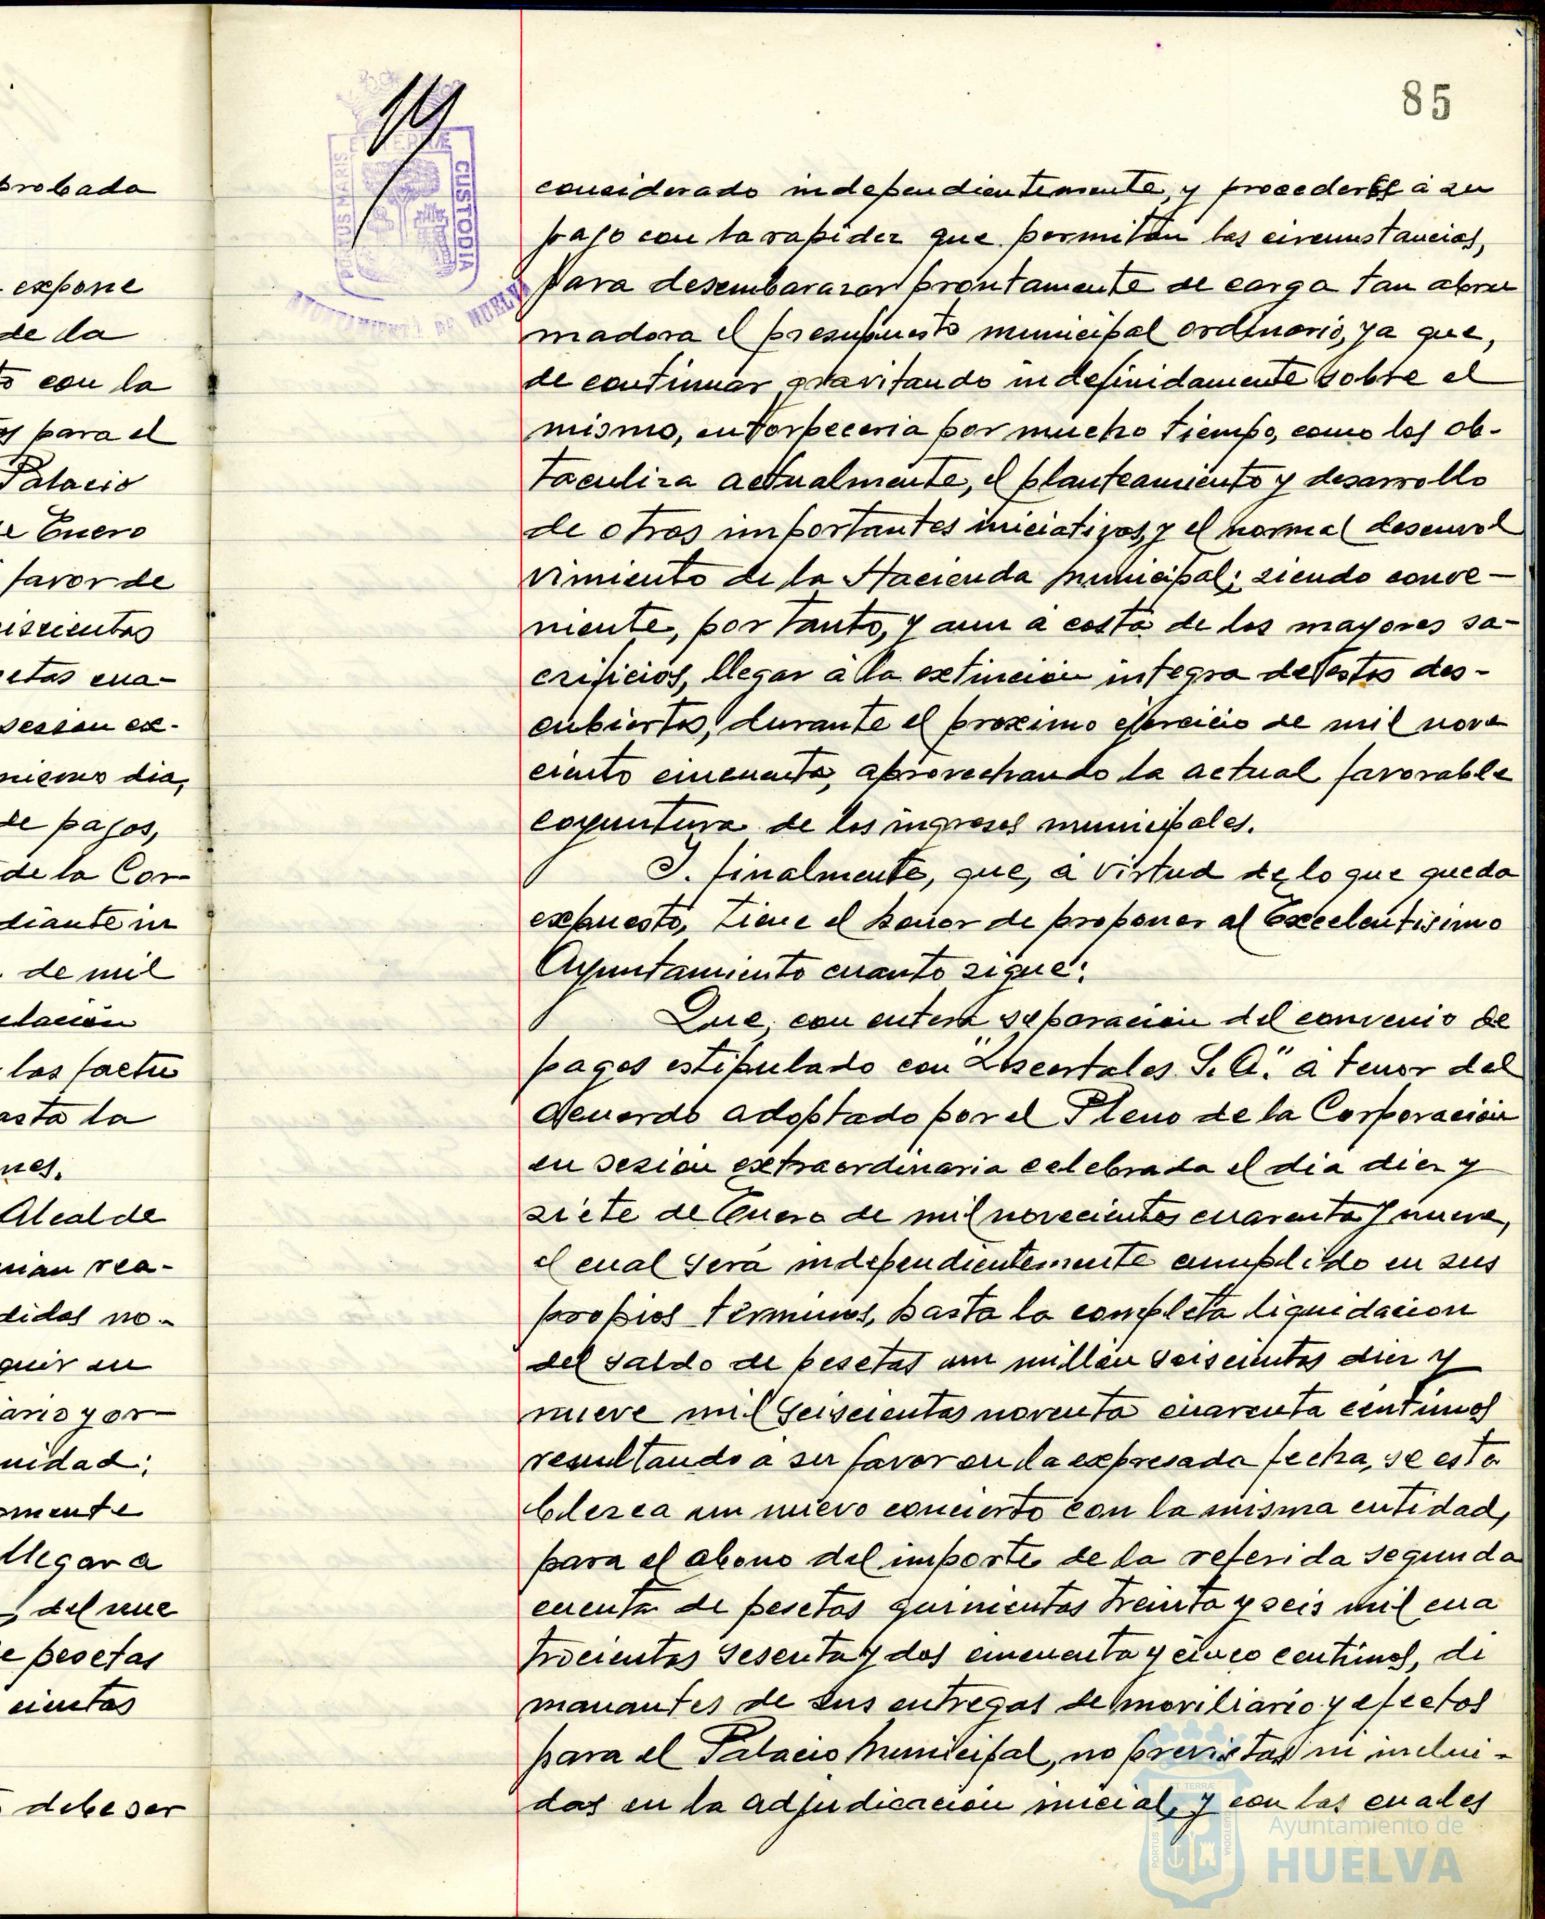 probada
expone
de la
con la
para el
Palacio
Enero
favor de
iscientos
etas cua-
sesion ex-
mismo dia,
de pagos,
de la Cor-
diante in
de mil
elación
las factu
asta la
nes.
Alcalde
nian rea-
didos no-
guir su
ario y or-
nidad;
mente
llegar a
del nue
e pesetas
cientos
debe ser
14
PORTUS MARIS ET TERRÆ CUSTODIA
AYUNTAMIENTO DE HUELVA
85
considerado independientemente, y procederse á su
pago con la rapidez que permitan las circunstancias,
para desembarazar prontamente de carga tan abru
madora el presupuesto municipal ordinario, ya que,
de continuar gravitando indefinidamente sobre el
mismo, entorpeceria por mucho tiempo, como los ob-
taculiza actualmente, el planteamiento y desarrollo
de otras importantes iniciativas, y el normal desenvol
vimiento de la Hacienda municipal; siendo conve-
niente, por tanto, y aun á costa de los mayores sa-
crificios, llegar á la extinción integra de estos des-
cubiertos, durante el proximo ejercicio de mil nove
ciento cincuenta, aprovechando la actual favorable
coyuntura de los ingresos municipales.
Y. finalmente, que, á virtud de lo que queda
expuesto, tiene el honor de proponer al Excelentisimo
Ayuntamiento cuanto sigue:
Que, con entera separación del convenio de
pagos estipulado con "Loscertales S. A." á tenor del
acuerdo adoptado por el Pleno de la Corporación
en sesión extraordinaria celebrada el dia diez y
siete de Enero de mil novecientos cuarenta y nueve,
el cual será independientemente cumplido en sus
propios términos, hasta la completa liquidacion
del saldo de pesetas un millón seiscientos diez y
nueve mil seiscientas noventa cuarenta céntimos
resultando á su favor en la expresada fecha, se esta
blezca un nuevo concierto con la misma entidad,
para el abono del importe de la referida segunda
cuenta de pesetas quinientas treinta y seis mil cua
trocientas sesenta y dos cincuenta y cinco centimos, di
manantes de sus entregas de moviliario y efectos
para el Palacio Municipal, no previstas ni inclui-
das en la adjudicación inicial, y con las cuales
Ayuntamiento de
HUELVA